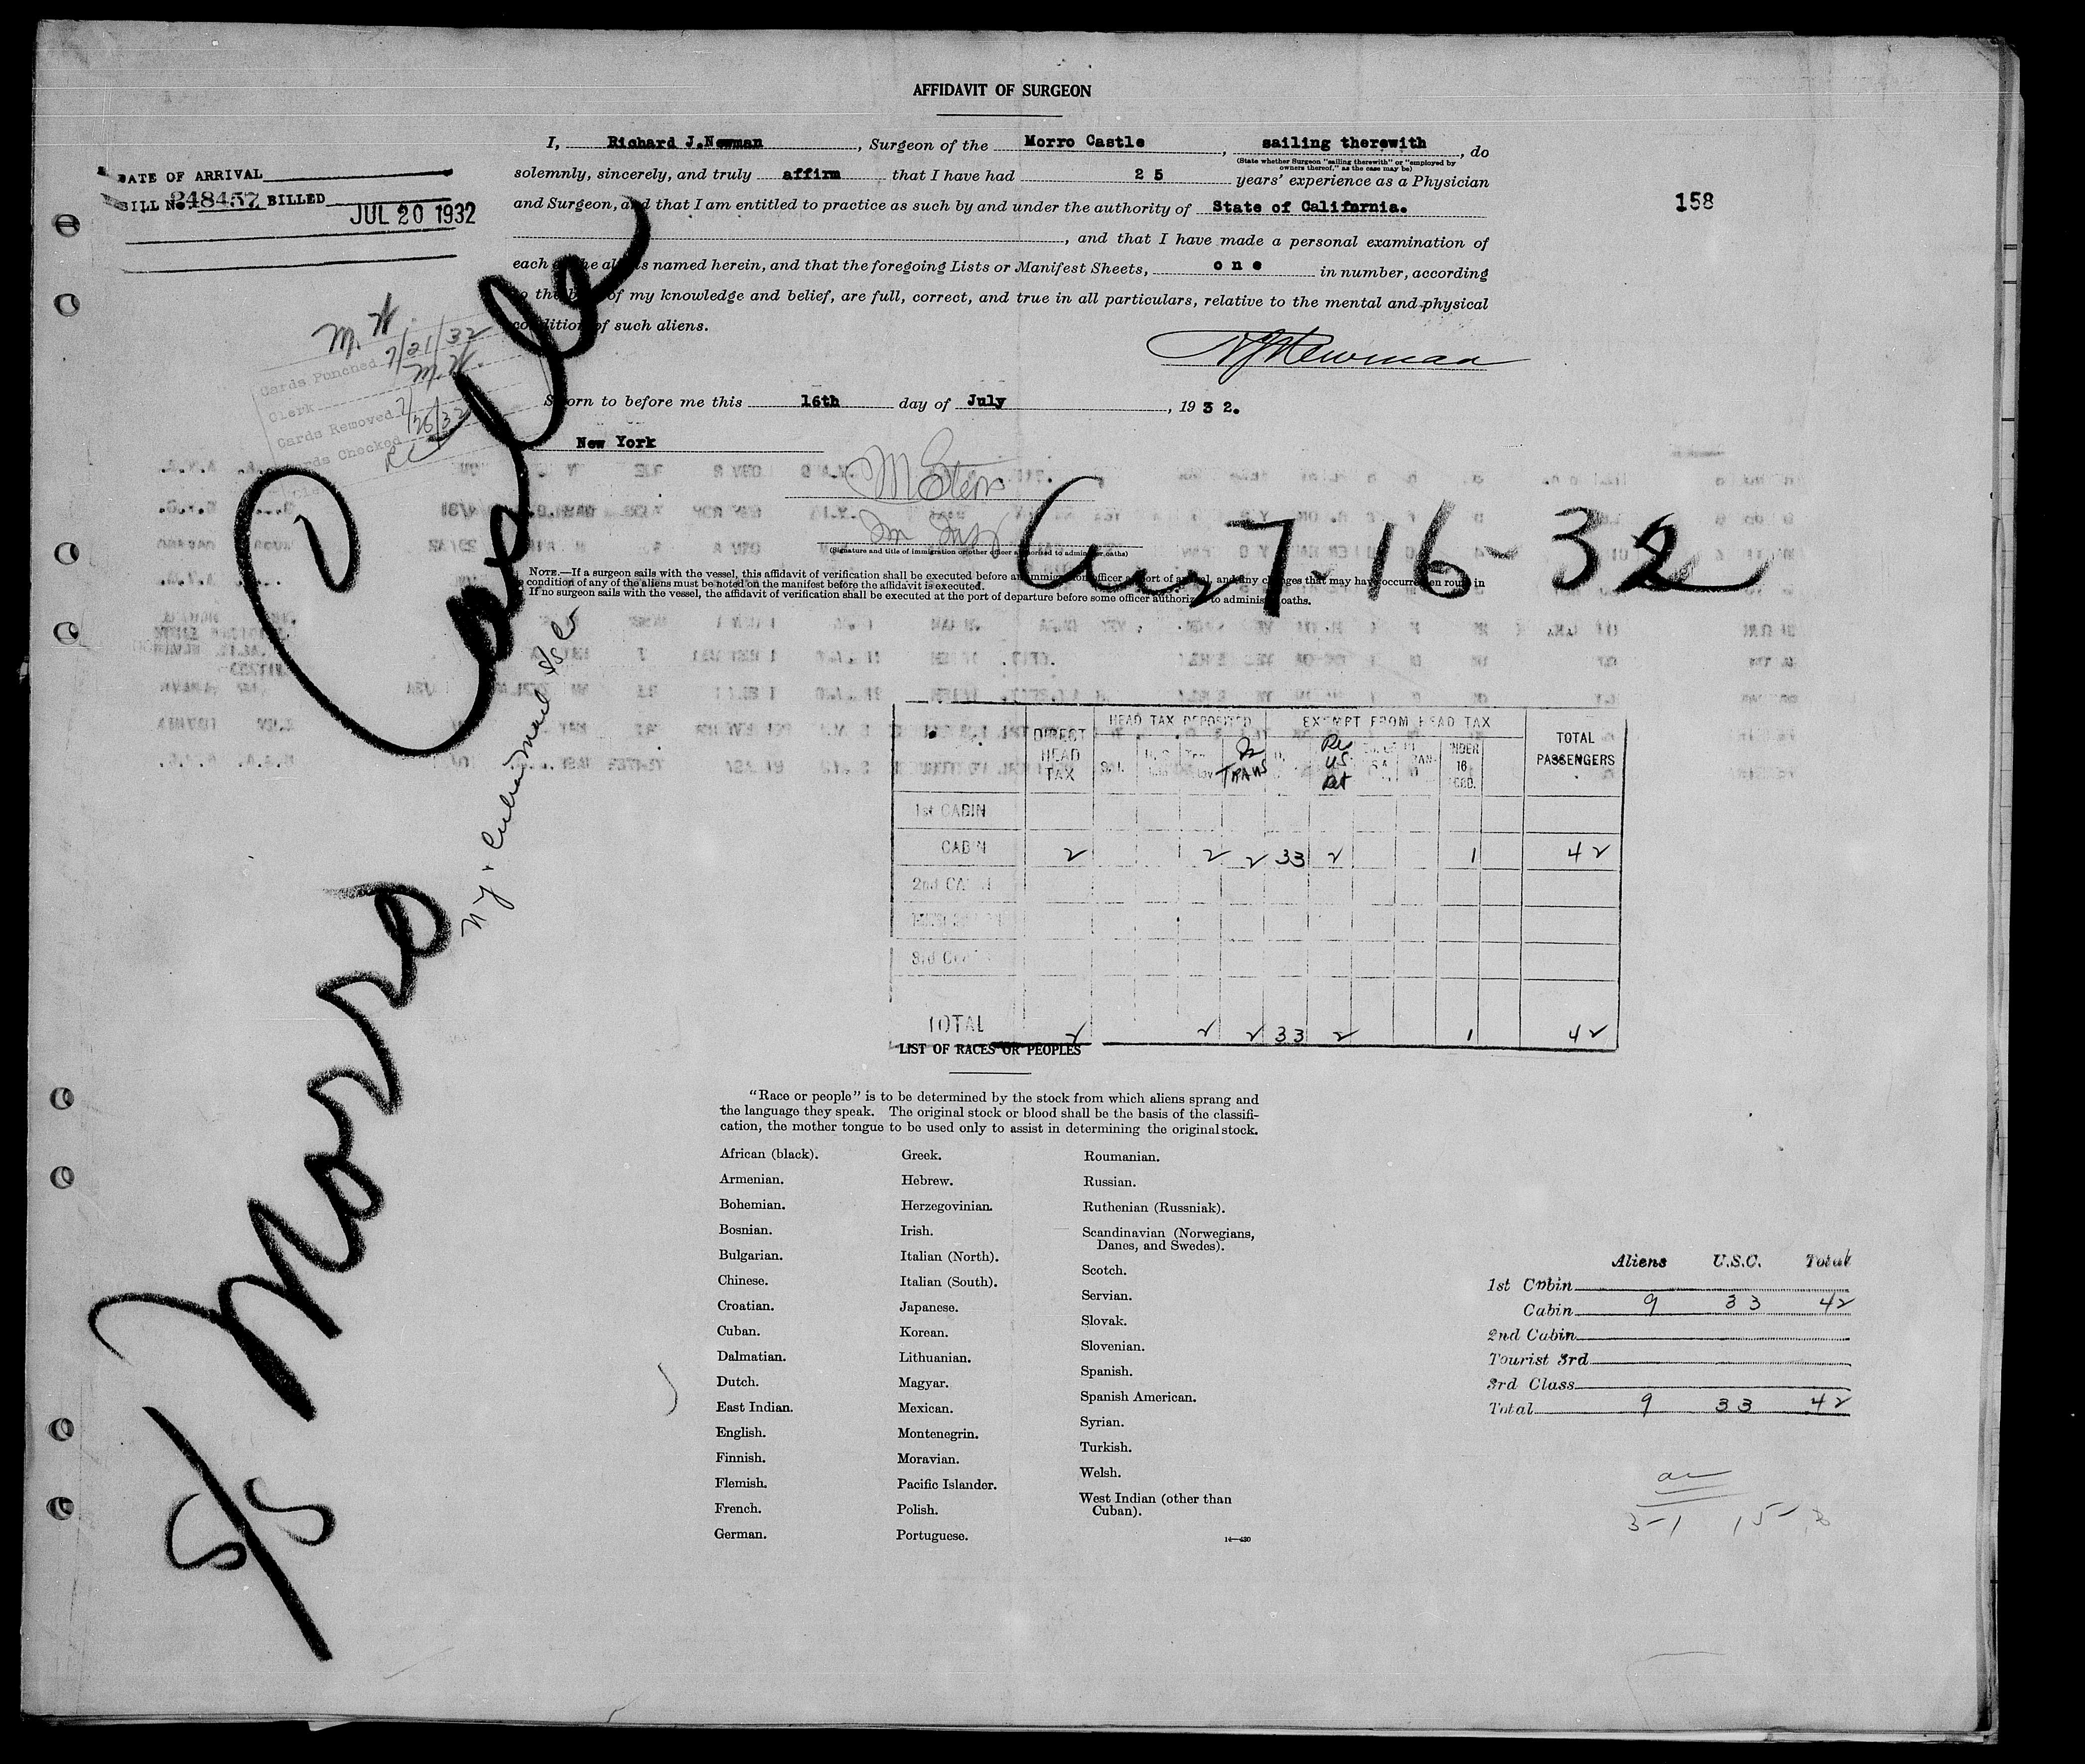 AFFIDAVIT OF SURGEON
I, Richard J.Newman, Surgeon of the Morro Castle, sailing therewith, do
(State whether Surgeon "sailing therewith" or "employed by owners thereof," as the case may be)
solemnly, sincerely, and truly affirm that I have had 2 5 years' experience as a Physician
and Surgeon, and that I am entitled to practice as such by and under the authority of State of California.
, and that I have made a personal examination of
each of the aliens named herein, and that the foregoing Lists or Manifest Sheets, o n e in number, according
to the best of my knowledge and belief, are full, correct, and true in all particulars, relative to the mental and physical
condition of such aliens.
RJNewman
Sworn to before me this 16th day of July, 19 3 2.
New York
M Stern
(Signature and title of immigration or other officer authorized to administer oaths)
NOTE.—If a surgeon sails with the vessel, this affidavit of verification shall be executed before an immigration officer at port of arrival, and any changes that may have occurred en route in
condition of any of the aliens must be noted on the manifest before the affidavit is executed.
If no surgeon sails with the vessel, the affidavit of verification shall be executed at the port of departure before some officer authorized to administer oaths.
DATE OF ARRIVAL
BILL No. 248457 BILLED
JUL 20 1932
158
M.W.
Cards Punched 7/21/32
Clerk M.W.
Cards Removed 7/26/32
Cards Checked
S/S Morro Castle
Arr 7-16-32
DIRECT HEAD TAX
HEAD TAX DEPOSITED
EXEMPT FROM HEAD TAX
TOTAL PASSENGERS
In Trans
Res U.S. Ret
UNDER 16
1st CABIN
CABIN 2 2 2 33 2 1 42
2nd CABIN
3rd
TOTAL 2 2 2 33 2 1 42
LIST OF RACES OR PEOPLES
"Race or people" is to be determined by the stock from which aliens sprang and
the language they speak. The original stock or blood shall be the basis of the classifi-
cation, the mother tongue to be used only to assist in determining the original stock.
African (black).
Armenian.
Bohemian.
Bosnian.
Bulgarian.
Chinese.
Croatian.
Cuban.
Dalmatian.
Dutch.
East Indian.
English.
Finnish.
Flemish.
French.
German.
Greek.
Hebrew.
Herzegovinian.
Irish.
Italian (North).
Italian (South).
Japanese.
Korean.
Lithuanian.
Magyar.
Mexican.
Montenegrin.
Moravian.
Pacific Islander.
Polish.
Portuguese.
Roumanian.
Russian.
Ruthenian (Russniak).
Scandinavian (Norwegians,
Danes, and Swedes).
Scotch.
Servian.
Slovak.
Slovenian.
Spanish.
Spanish American.
Syrian.
Turkish.
Welsh.
West Indian (other than
Cuban).
14—430
Aliens U.S.C. Total
1st Cabin
Cabin 9 33 42
2nd Cabin
Tourist 3rd
3rd Class
Total 9 33 42